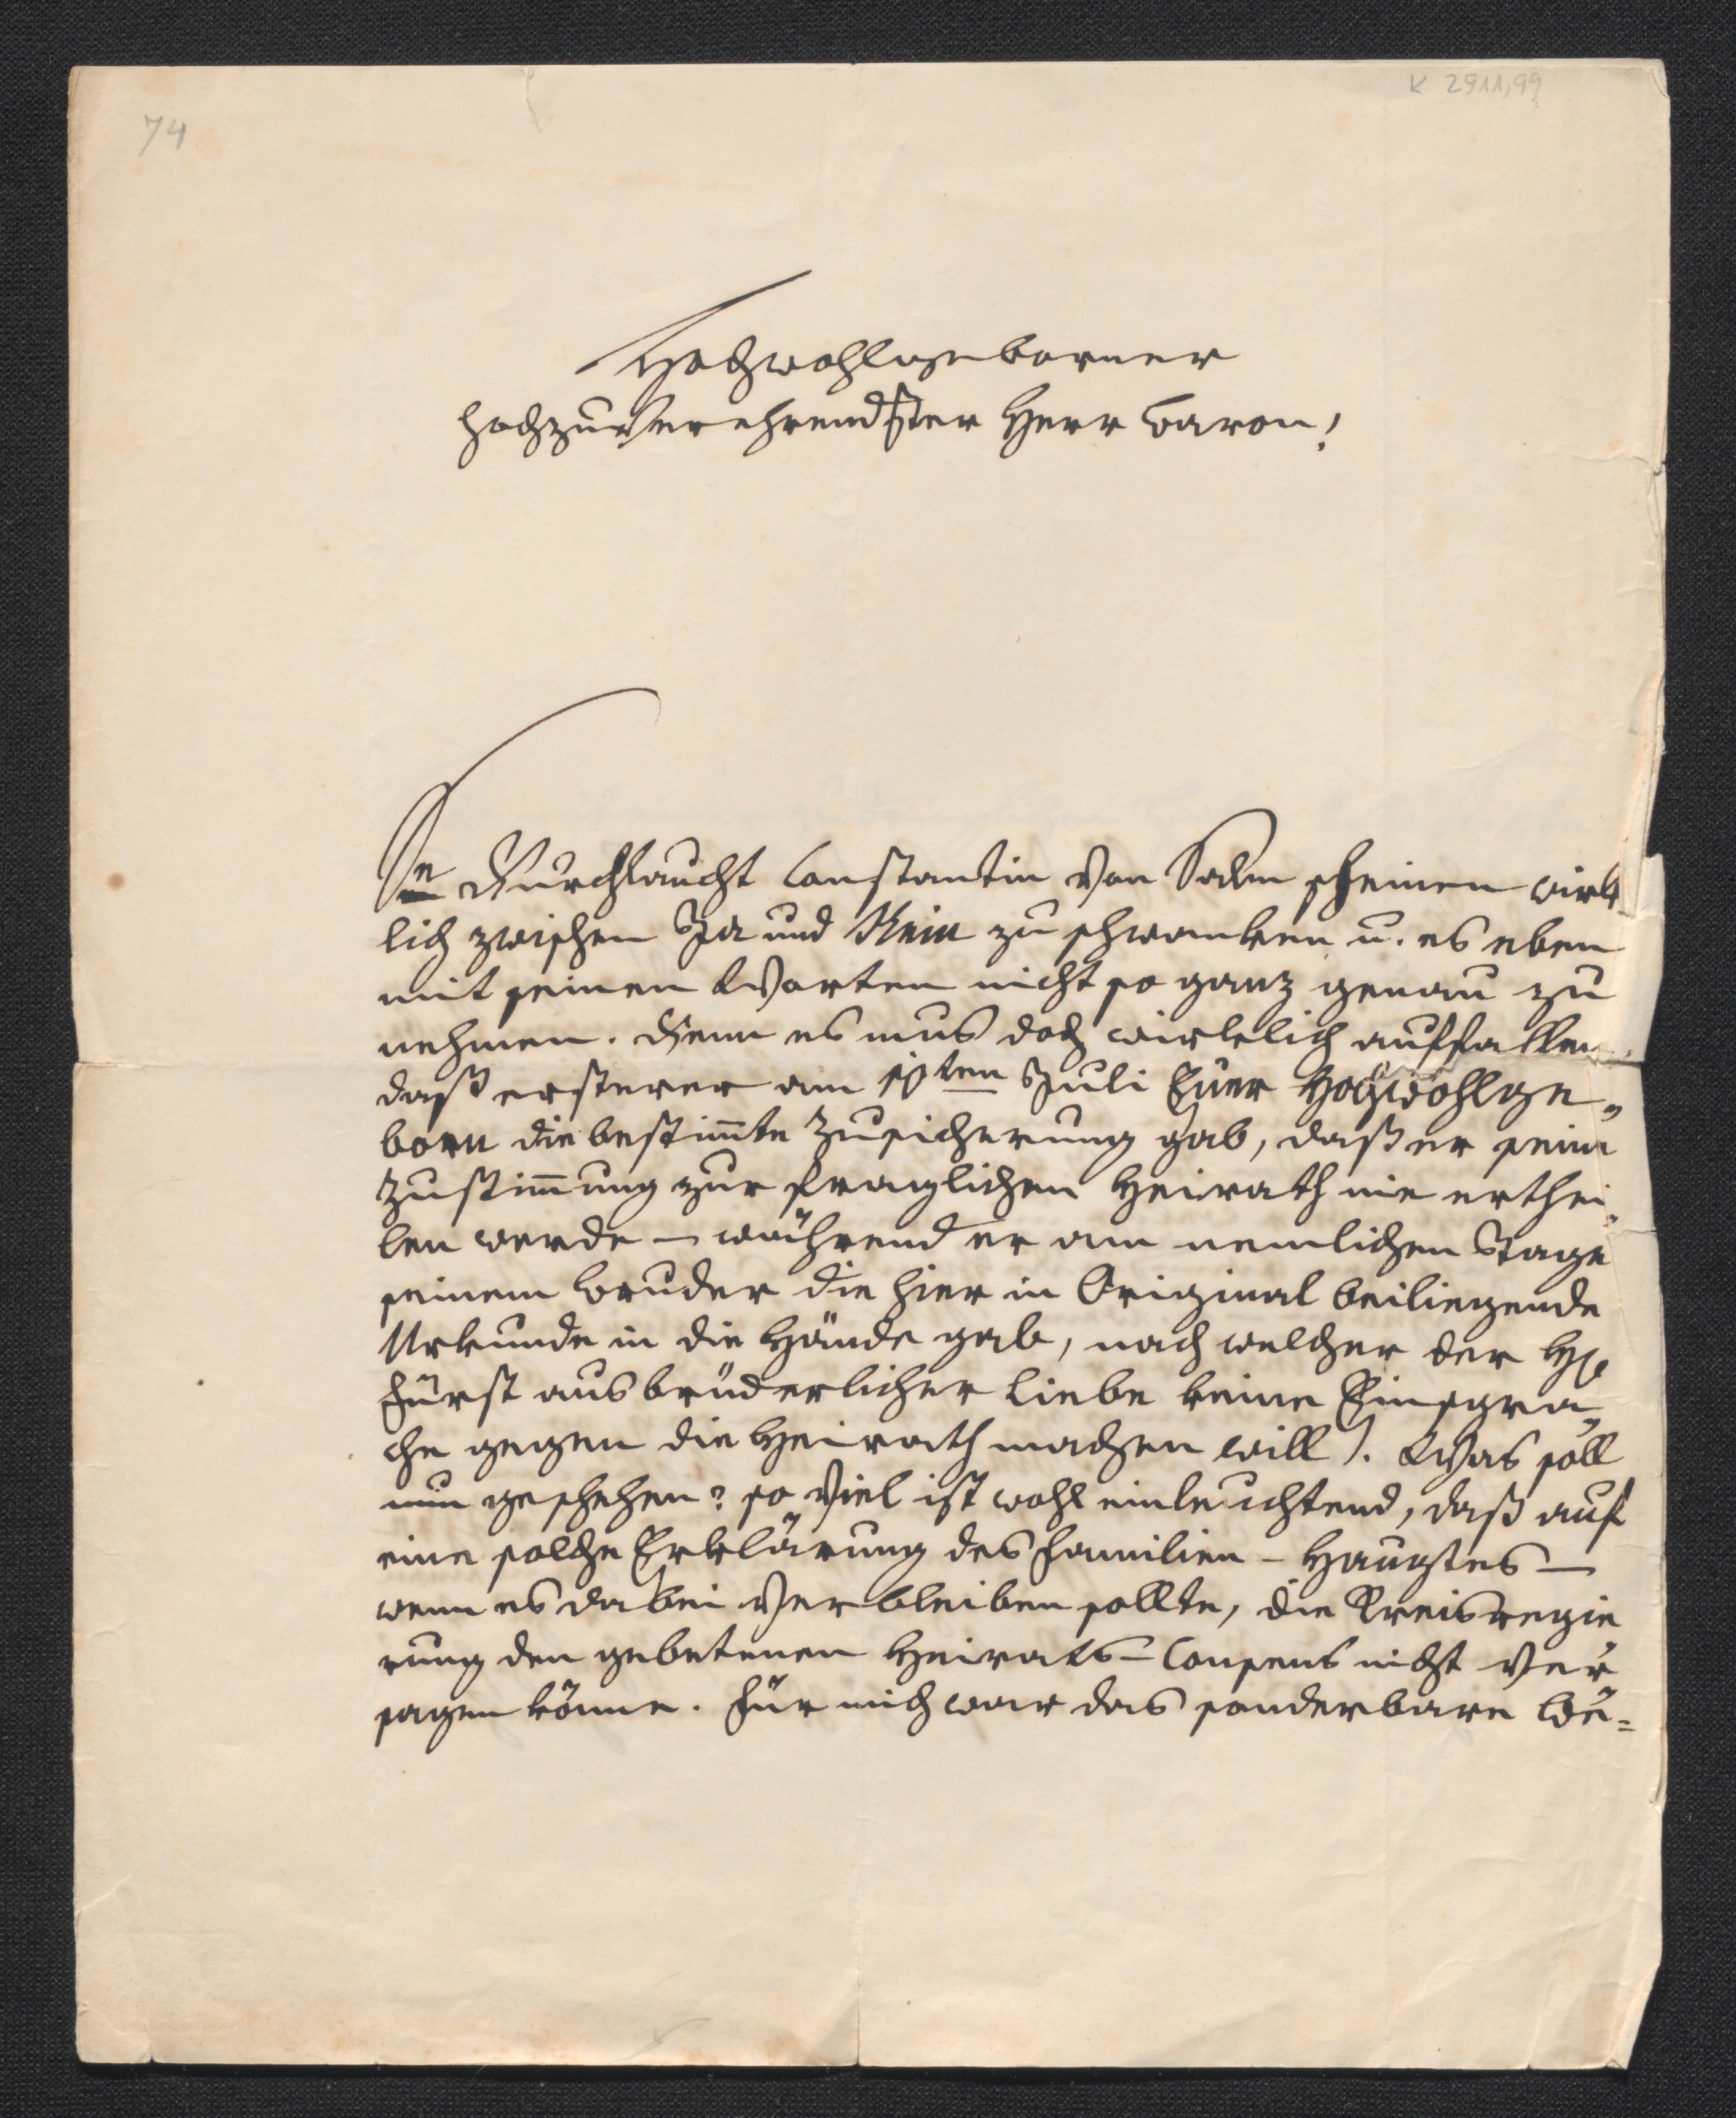 K 2911,99
74
Hochwohlgeborner
hochzuverehrendster Herr Baron!
Se Durchlaucht Constantin von Salm scheinen wirk
lich zwischen Ja und Nein zu schwanken u. es eben
mit seinen Worten nicht so ganz genau zu
nehmen. Denn es mus doch wirklich auffallen
daß ersterer am 10ten Juli Euer Hochwohlge„
born die bestim̅te Zusicherung gab, daß er seine
Zustim̅ung zur fraglichen Heirath nie erthei„
len werde – während er am nemlichen Tage
seinem Bruder die hier in Original beiliegende
Urkunde in die Hände gab, nach welcher der H.
Fürst aus brüderlicher Liebe keine Einspra„
che gegen die Heirath machen will). Was soll
nun geschehen? so viel ist wohl einleuchtend, daß auf
eine solche Erklärung des Familien-Hauptes –
wenn es dabei verbleiben sollte, die Kreisregie
rung den gebetenen Heirats-Consens nicht ver
sagen könne. Für mich war das sonderbare Be=